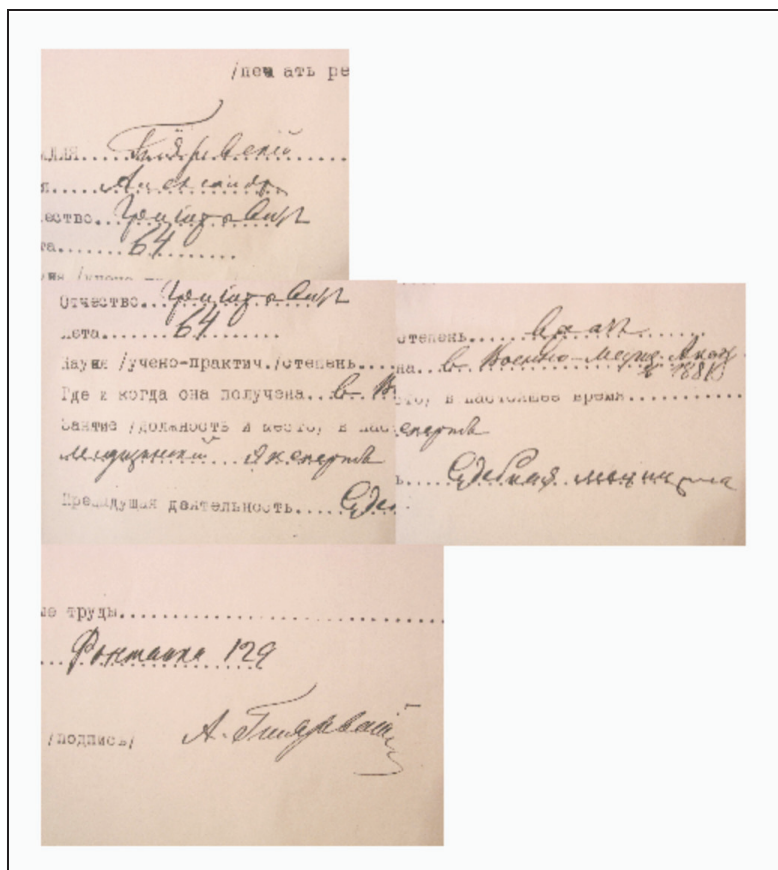 /печать ре
илия.....Гиляревский
я.....Александр
ество..Григорьевич
ета.......64.........
Отчество..Григорьевич
Лета.......64.........
Научн /учено-практич./степень....
Где и когда она получена..в В
Занятие /должность и место/ в нас
медицинский эксперт
Предыдущая деятельность....Суде
степень...врач.......
на..в Военно-Медиц. Акад.
то/ в настоящее время.............
ксперт
ь....Судебная медицина
ые труды..............................
....Фонтанка 129
/подпись/ А. Гиляревский